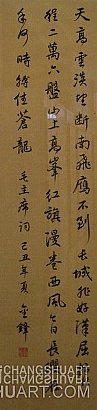 天高雲淡望断南飛雁不到長城非好漢屈指行
程二萬六盤山上高峰紅旗漫卷西風今日長纓在
手何時縛住蒼龍 毛主席詞 己丑年夏 金鋒
CHANGSHUART